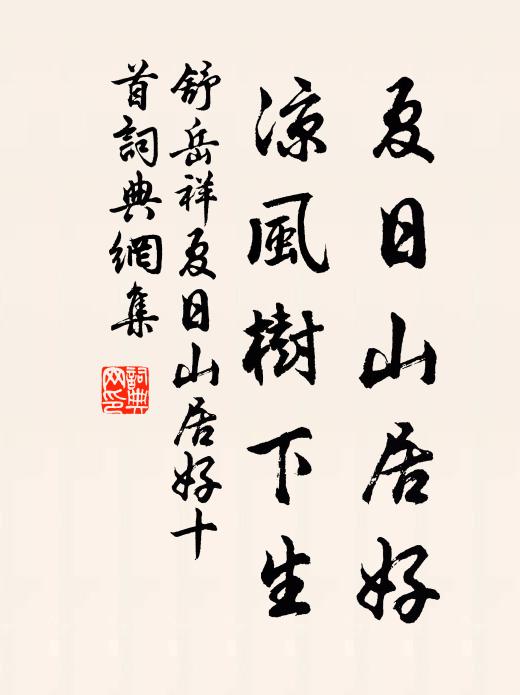 夏日山居好
凉風樹下生
舒岳祥夏日山居好十
首詞典網集
詞典
网印